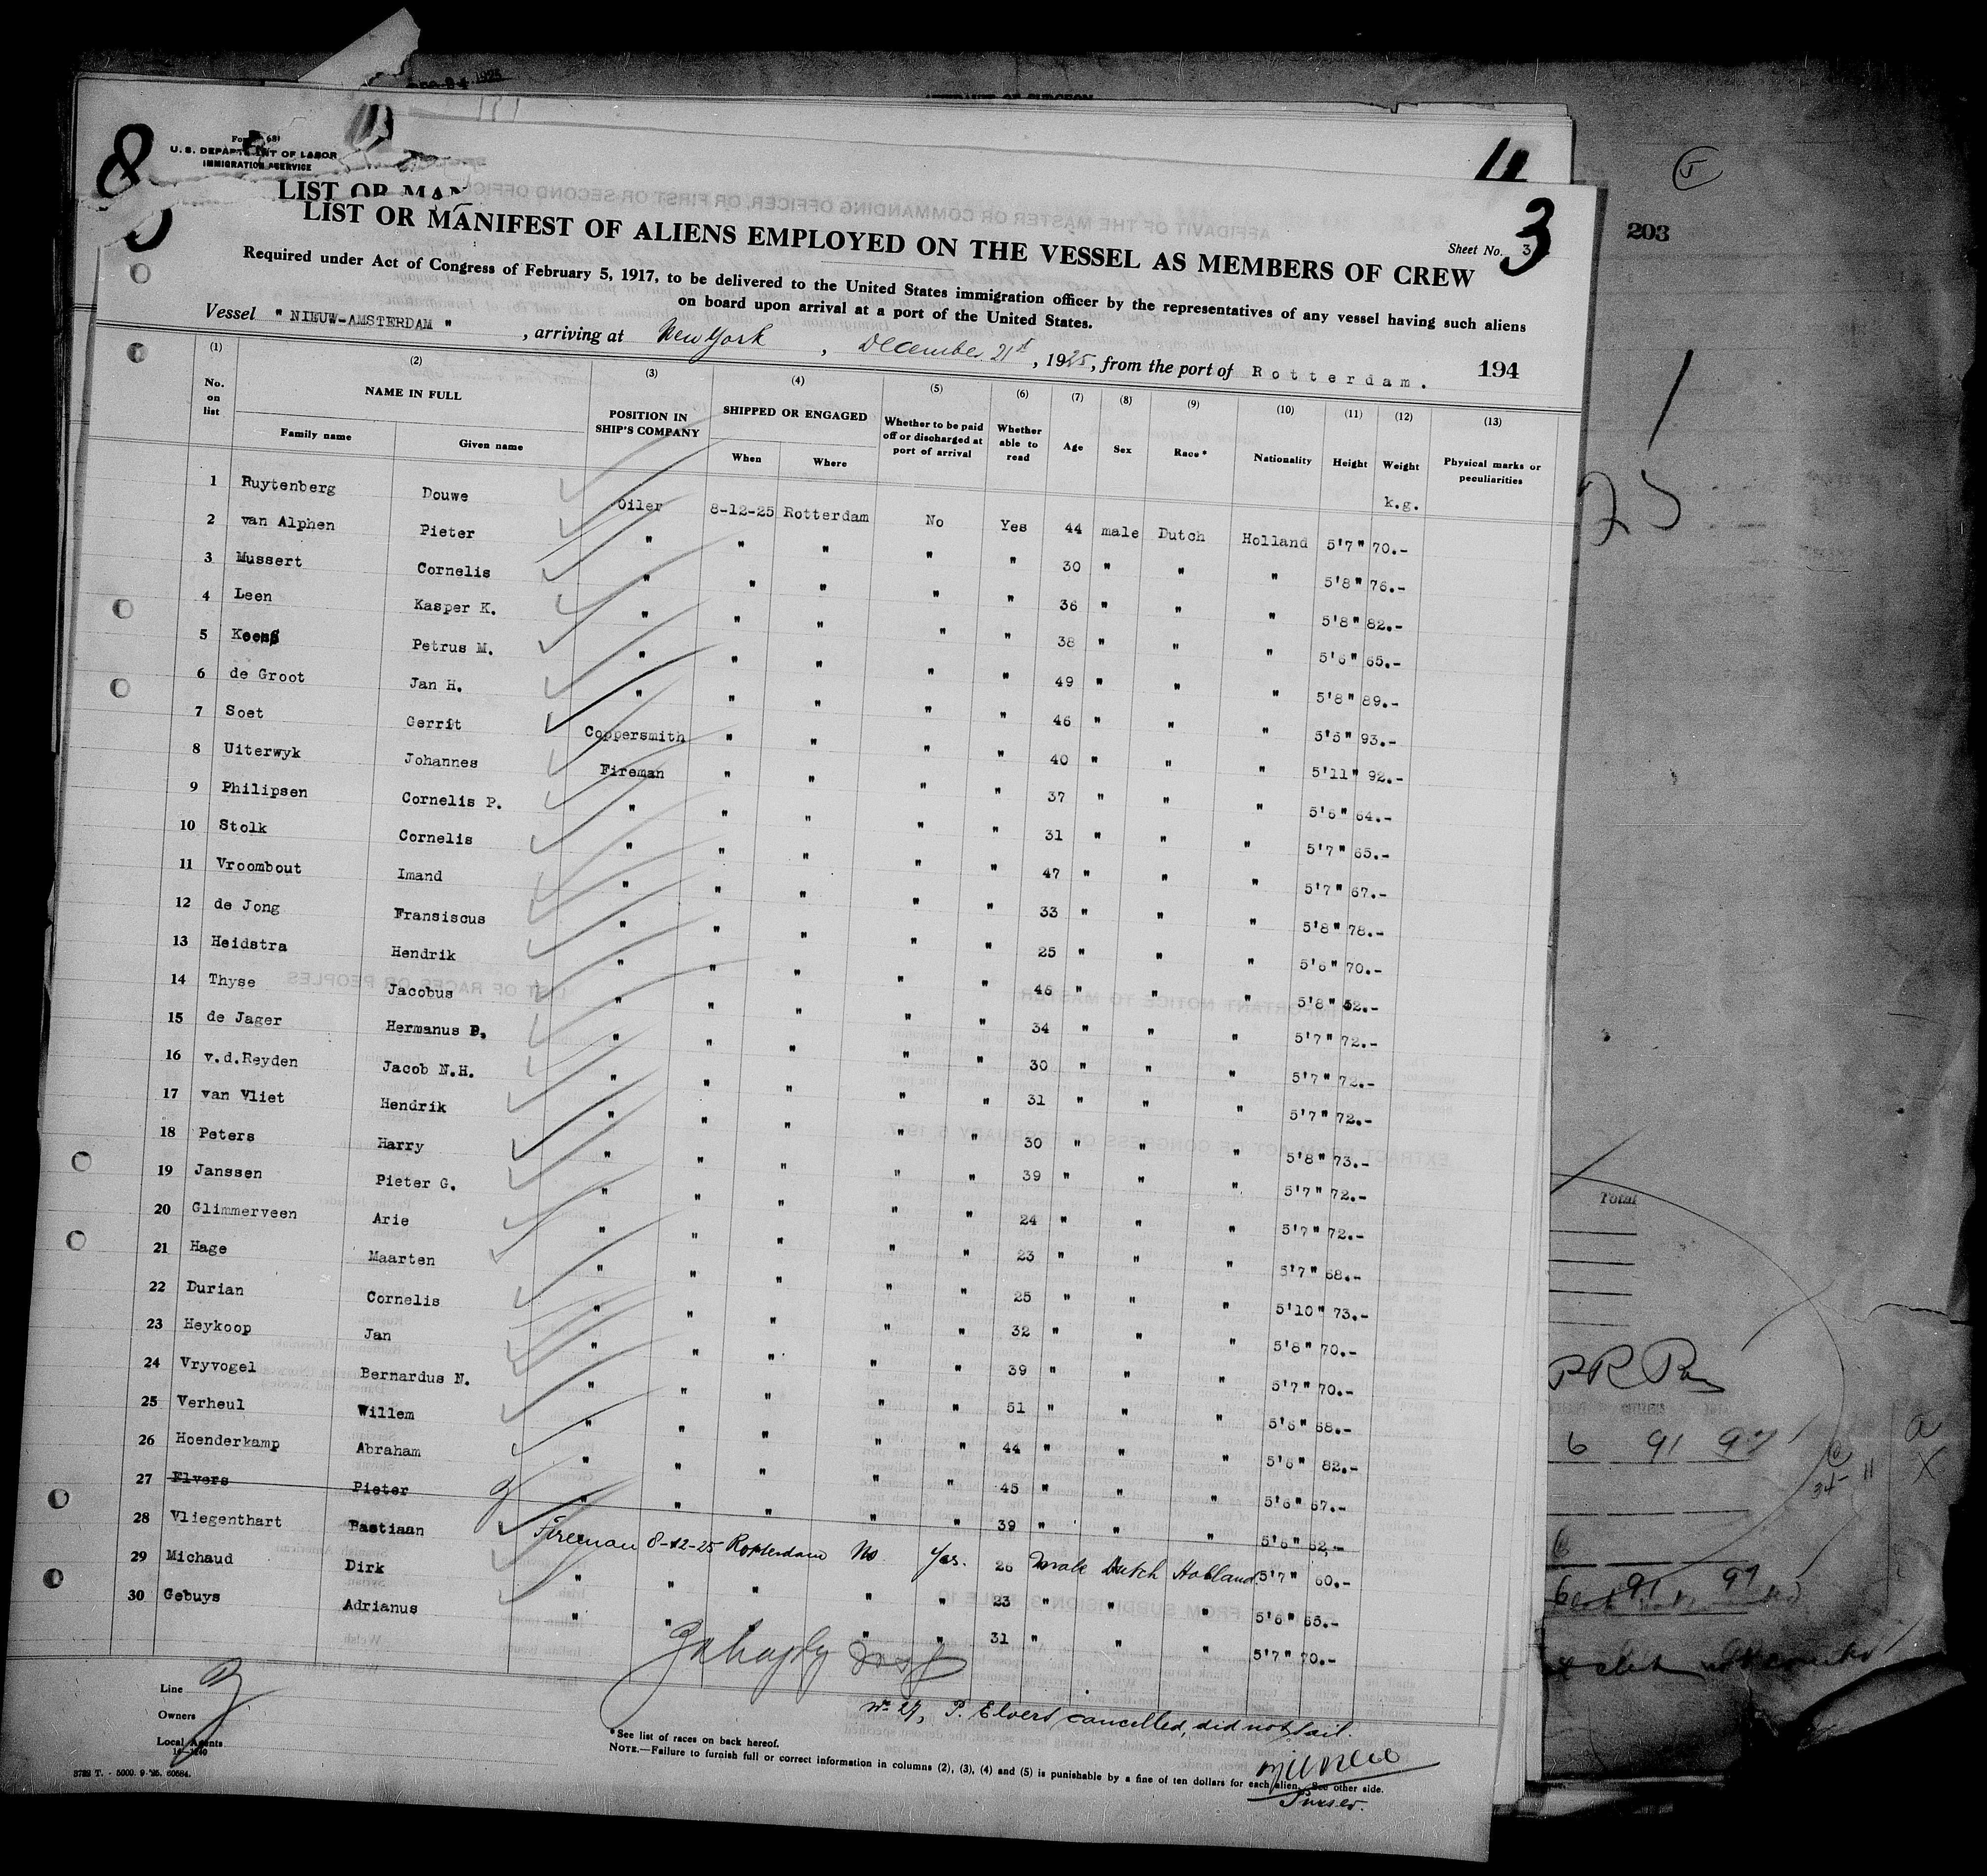 U. S. DEPARTMENT OF LABOR
IMMIGRATION SERVICE
8
11
3
203
LIST OR MAN
LIST OR MANIFEST OF ALIENS EMPLOYED ON THE VESSEL AS MEMBERS OF CREW
Sheet No. 3
Required under Act of Congress of February 5, 1917, to be delivered to the United States immigration officer by the representatives of any vessel having such aliens
on board upon arrival at a port of the United States.
Vessel " NIEUW-AMSTERDAM " , arriving at New York , December 21st , 1925, from the port of Rotterdam. 194
(1) (2) (3) (4) (5) (6) (7) (8) (9) (10) (11) (12) (13)
No. on list NAME IN FULL Family name Given name POSITION IN SHIP'S COMPANY SHIPPED OR ENGAGED When Where Whether to be paid off or discharged at port of arrival Whether able to read Age Sex Race* Nationality Height Weight Physical marks or peculiarities
k.g.
1 Ruytenberg Douwe Oiler 8-12-25 Rotterdam No Yes 44 male Dutch Holland 5'7" 70.-
2 van Alphen Pieter " " " " " 30 " " " 5'8" 76.-
3 Mussert Cornelis " " " " " 36 " " " 5'8" 82.-
4 Leen Kasper K. " " " " " 38 " " " 5'6" 65.-
5 Koens Petrus M. " " " " " 49 " " " 5'8" 89.-
6 de Groot Jan H. " " " " " 46 " " " 5'5" 93.-
7 Soet Gerrit Coppersmith " " " " 40 " " " 5'11" 92.-
8 Uiterwyk Johannes Fireman " " " " 37 " " " 5'6" 64.-
9 Philipsen Cornelis P. " " " " " 31 " " " 5'7" 65.-
10 Stolk Cornelis " " " " " 47 " " " 5'7" 67.-
11 Vroombout Imand " " " " " 33 " " " 5'8" 78.-
12 de Jong Fransiscus " " " " " 25 " " " 5'6" 70.-
13 Heidstra Hendrik " " " " " 46 " " " 5'8" 52.-
14 Thyse Jacobus " " " " " 34 " " " 5'7" 72.-
15 de Jager Hermanus D. " " " " " 30 " " " 5'7" 72.-
16 v.d.Reyden Jacob N.H. " " " " " 31 " " " 5'7" 72.-
17 van Vliet Hendrik " " " " " 30 " " " 5'8" 73.-
18 Peters Harry " " " " " 39 " " " 5'7" 72.-
19 Janssen Pieter G. " " " " " 24 " " " 5'7" 72.-
20 Glimmerveen Arie " " " " " 23 " " " 5'7" 68.-
21 Hage Maarten " " " " " 25 " " " 5'10" 73.-
22 Durian Cornelis " " " " " 32 " " " 5'8" 70.-
23 Heykoop Jan " " " " " 39 " " " 5'7" 70.-
24 Vryvogel Bernardus N. " " " " " 51 " " " 5'6" 68.-
25 Verheul Willem " " " " " 44 " " " 5'6" 82.-
26 Hoenderkamp Abraham " " " " " 45 " " " 5'6" 67.-
27 Elvers Pieter " " " " " 39 " " " 5'6" 62.-
28 Vliegenthart Bastiaan Fireman 8-12-25 Rotterdam No Yes. 26 Male Dutch Holland 5'7" 60.-
29 Michaud Dirk " " " " " 23 " " " 5'6" 65.-
30 Gebuys Adrianus " " " " " 31 " " " 5'7" 70.-
No 27, P. Elvers cancelled, did not sail.
Purser.
Line
Owners
Local Agents
16-1240
*See list of races on back hereof.
NOTE.—Failure to furnish full or correct information in columns (2), (3), (4) and (5) is punishable by a fine of ten dollars for each alien. See other side.
3782 T. - 5000. 9-'25. 60684.
Total
6 91 97
6 91 97